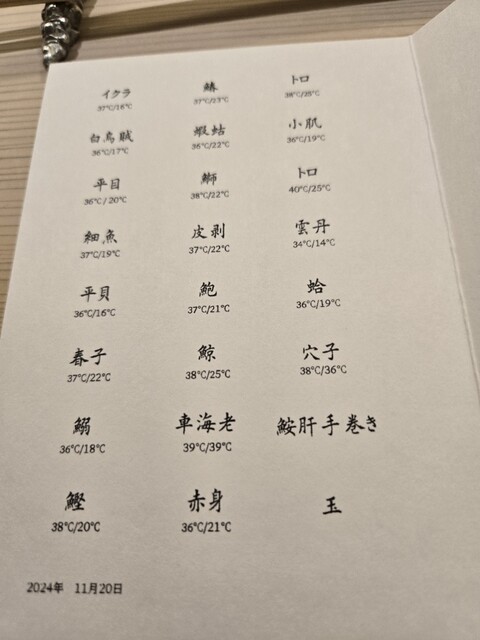 イクラ
37℃/16℃
白烏賊
36℃/17℃
平目
36℃/20℃
細魚
37℃/19℃
平貝
36℃/16℃
春子
37℃/22℃
鰯
36℃/18℃
鰹
38℃/20℃
鰆
37℃/23℃
蝦蛄
36℃/22℃
鰤
38℃/22℃
皮剥
37℃/22℃
鮑
37℃/21℃
鯨
38℃/25℃
車海老
39℃/39℃
赤身
36℃/21℃
トロ
38℃/25℃
小肌
36℃/19℃
トロ
40℃/25℃
雲丹
34℃/14℃
蛤
36℃/19℃
穴子
38℃/36℃
鮟肝手巻き
玉
2024年 11月20日